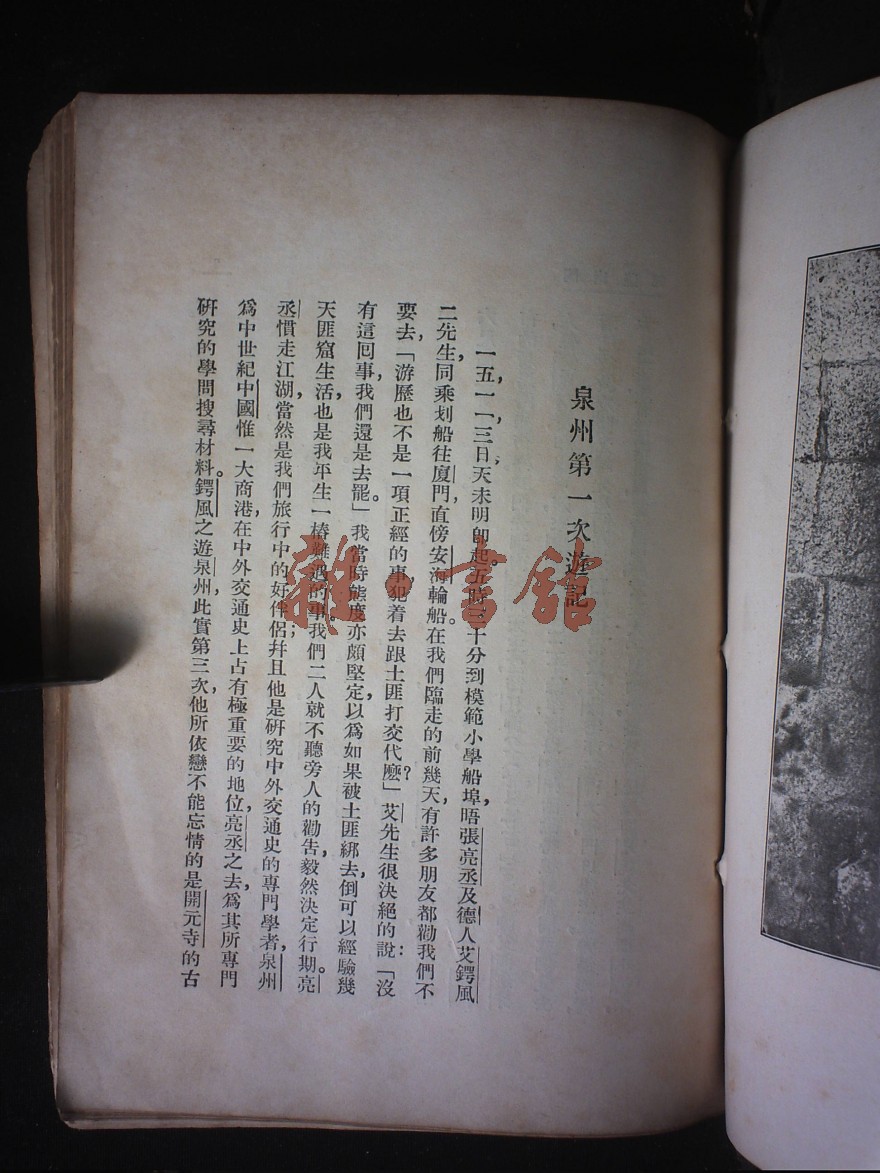 泉州第一次遊記
一五，一一，三日，天未明即起。五時三十分到模範小學船埠，晤張亮丞及德人艾鍔風
二先生，同乘划船往廈門，直傍安海輪船。在我們臨走的前幾天，有許多朋友都勸我們不
要去，「游歷也不是一項正經的事，犯着去跟土匪打交代麼？」艾先生很決絕的說：「沒
有這回事，我們還是去罷。」我當時態度亦頗堅定，以爲如果被土匪綁去，倒可以經驗幾
天匪窟生活，也是我平生一樁難過的事。我們二人就不聽旁人的勸告，毅然決定行期。亮
丞慣走江湖，當然是我們旅行中的好伴侶；幷且他是研究中外交通史的專門學者，泉州
爲中世紀中國惟一大商港，在中外交通史上占有極重要的地位，亮丞之去，爲其所專門
研究的學問搜尋材料。鍔風之遊泉州，此實第三次，他所依戀不能忘情的是開元寺的古
雜·書館